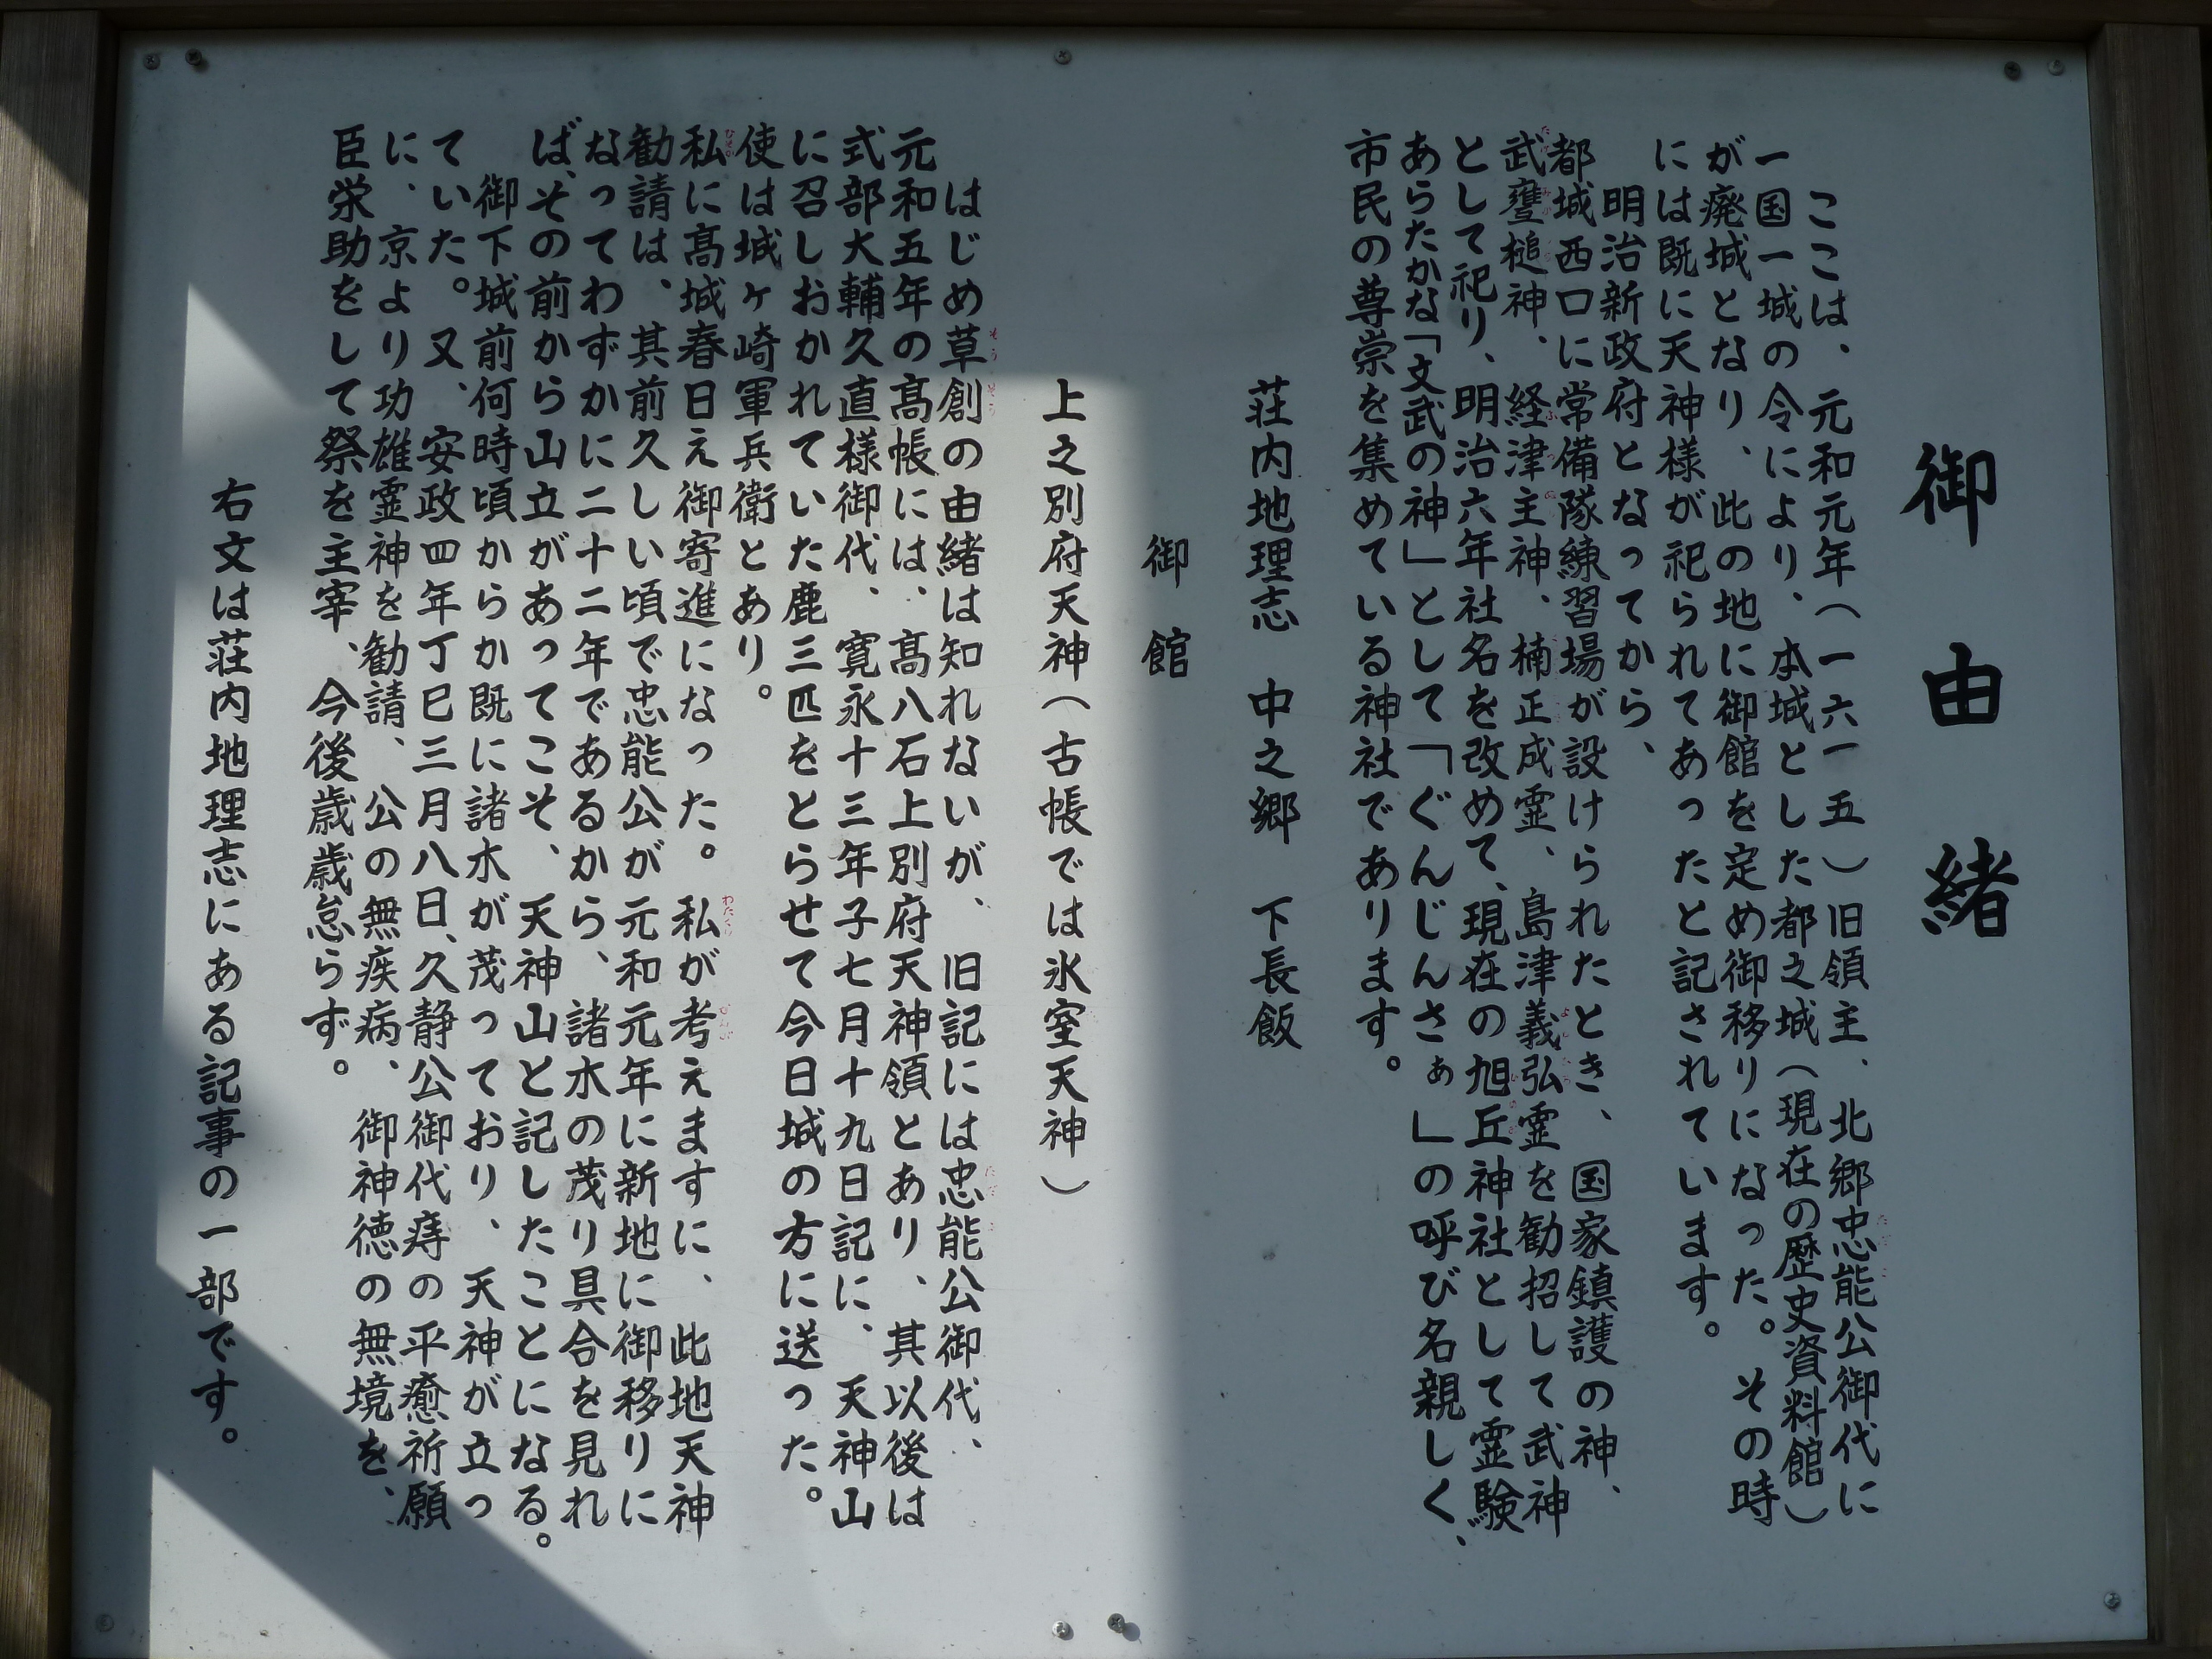 御由緒
ここは、元和元年（一六一五）旧領主、北郷忠能公御代に
一国一城の令により、本城とした都之城（現在の歴史資料館）
が廃城となり、此の地に御館を定め御移りになった。その時
には既に天神様が祀られてあったと記されています。
明治新政府となってから、
都城西口に常備隊練習場が設けられたとき、国家鎮護の神、
武甕槌神、経津主神、楠正成霊、島津義弘霊を勧招して武神
として祀り、明治六年社名を改めて、現在の旭丘神社として霊験
あらたかな「文武の神」として「ぐんじんさぁ」の呼び名親しく、
市民の尊崇を集めている神社であります。
荘内地理志　中之郷　下長飯
御館
上之別府天神（古帳では氷室天神）
はじめ草創の由緒は知れないが、旧記には忠能公御代、
元和五年の髙帳には、髙八石上別府天神領とあり、其以後は
式部大輔久直様御代、寛永十三年子七月十九日記に、天神山
に召しおかれていた鹿三匹をとらせて今日城の方に送った。
使は城ヶ崎軍兵衛とあり。
私に髙城春日え御寄進になった。私が考えますに、此地天神
勧請は、其前久しい頃で忠能公が元和元年に新地に御移りに
なってわずかに二十二年であるから、諸木の茂り具合を見れ
ば、その前から山立があってこそ、天神山と記したことになる。
御下城前何時頃からか既に諸木が茂っており、天神が立っ
ていた。又、安政四年丁巳三月八日、久静公御代痔の平癒祈願
に、京より功雄霊神を勧請、公の無疾病、御神徳の無境を、
臣栄助をして祭を主宰、今後歳歳怠らず。
右文は荘内地理志にある記事の一部です。